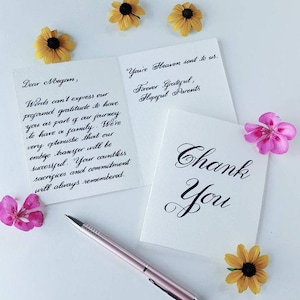 Dear Megan,
Words can't express our
profound gratitude to have
you as part of our journey
to have a family. We're
very optimistic that our
embryo transfer will be
successful. Your countless
sacrifices and commitment
will always remembered.
You're Heaven sent to us.
Forever Grateful,
Hopeful Parents
Thank
You